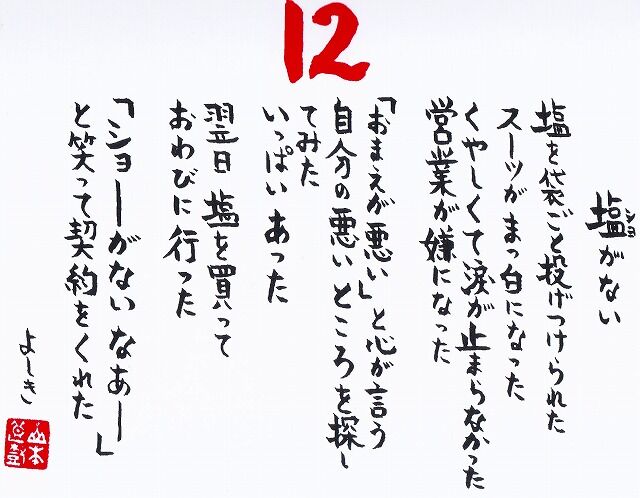 12
塩がない
ショ
塩を袋ごと投げつけられた
スーツがまっ白になった
くやしくて涙が止まらなかった
営業が嫌になった
「おまえが悪い」と心が言う
自分の悪いところを探し
てみた
いっぱいあった
翌日 塩を買って
おわびに行った
「ショーがないなあー」
と笑って契約をくれた
よしき